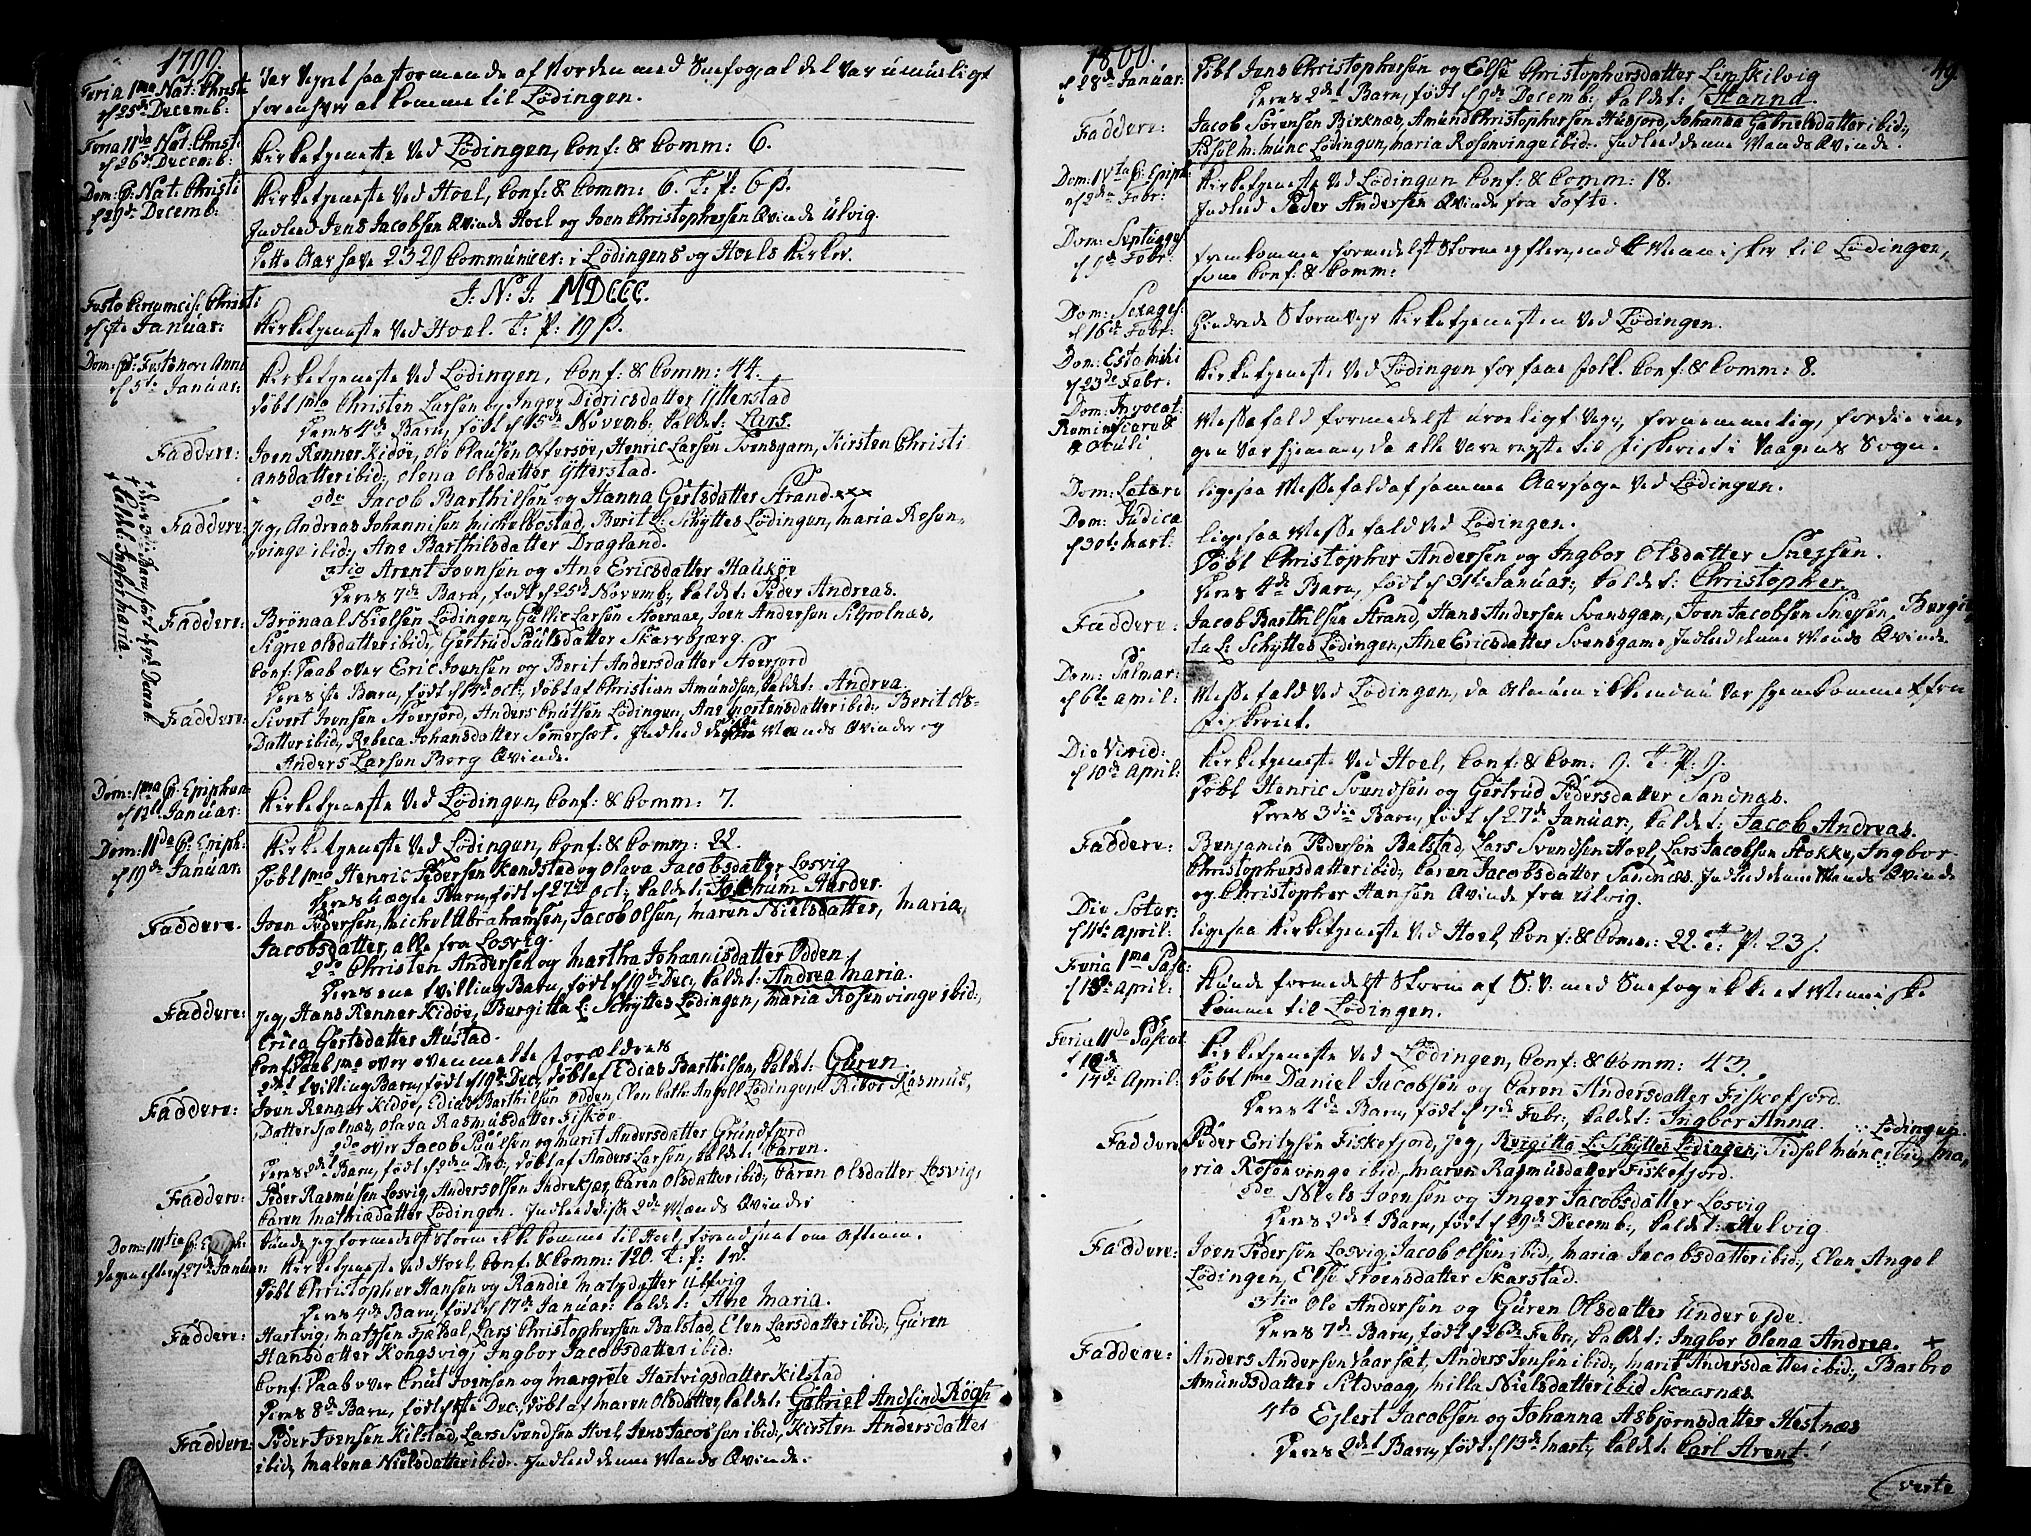 1799.
Feria 1ma Nat: Christi
d 25de Decemb:
Var Veyret saa stormende af Norden med Sneefog, at det var umueligt
for enhver at komme til Lødingen.
Feria 11da Nat: Christi
d 26de Decemb:
Kirketjeneste ved Lødingen, Conf: & Comm: 6.
Dom: p: Nat: Christi
d 29de Decemb:
Kirketjeneste ved Hoel, Conf: & Comm: 6. T: P: 6 β.
Indleed Jens Jacobsen Qvinde Hoel og Joen Christophersen Qvinde Ulvig.
Dette Aar have 2329 Communicer: i Lødingens og Hoels Kirker.
J. N. J. MDCCC.
Festo Circumcis: Christi
d 1ste Januar:
Kirketjeneste ved Hoel. T: P: 19 β.
Dom: p: Fest: novi Anni
d 5te Januar:
Kirketjeneste ved Lødingen, Conf: & Comm: 44.
Døbt 1mo Christen Larsen og Inger Didricsdatter Ytterstad
Deres 4de Barn, født d 15de Novemb: kaldet: Lars.
Faddere: Joen Renner Kidøe, Ole Clausen Ostersøe, Henric Larsen Svensgam, Kirsten Christi
ansdatter ibid:, Olena Olsdatter Ytterstad.
2do Jacob Barthilsen og Hanna Gertsdatter Strand xxx
† deres 3die Barn, født d 3die Decemb:
† kaldet: Ingbor Maria.
Faddere: Jeg, Andreas Johannisen Michelbostad, Berit L: Schyttes Lødingen, Maria Rosen-
vinge ibid:, Ane Barthilsdatter Dragland.
3tio Arent Joensen og Ane Ericsdatter Haukøe
Deres 7de Barn, født d 25de Novemb: kaldet: Peder Andreas.
Faddere: Brønaal Nielsen Lødingen, Gullic Larsen Hoeraae, Joen Andersen Silpolnæs,
Signe Olsdatter ibid:, Gertrud Paulsdatter Skarvbjærg.
Conf: Daab over Eric Joensen og Berit Andersdatter Aoerfjord
Deres 1ste Barn, født d 14de Oct:, døbt af Christian Amundsen, kaldet: Andrea.
Faddere: Sivert Joensen Aoerfjord, Anders Cnutsen Lødingen, Ane Mortensdatter ibid:, Berit Ols-
datter ibid:, Rebeca Johansdatter Sømmersæt. Indleed disse Mænds Qvinder og
Anders Larsen Berg Qvinde.
Dom: 1ma p: Epiphan:
d 12te Januar:
Kirketjeneste ved Lødingen, Conf: & Comm: 7.
Dom: 11da p: Epiph:
d 19de Januar:
Kirketjeneste ved Lødingen, Conf: & Comm: 22.
Døbt 1mo Henric Pedersen Kandstad og Olava Jacobsdatter Losvig
Deres 4 ægte Barn, født d 27de Oct:, kaldet: Jochum Harder.
Faddere: Joen Pedersen, Michel Abrahamsen, Jacob Olsen, Maren Nielsdatter, Maria
Jacobsdatter, alle fra Losvig.
2do Christen Andersen og Martha Johannisdatter Odden
Deres ene tvilling Barn, født d 19de Dec:, kaldet: Andrea Maria.
Faddere: Jeg, Hans Renner Kidøe, Burgitta L: Schyttes Lødingen, Maria Rosenvinge ibid:,
Erica Gertsdatter Hustad.
Conf: Daab 1mo over ovenmelte Forældres
2det tvilling Barn, født d 19de Dec:, døbt af Edias Barthilsen, kaldet: Guren.
Faddere: Joen Renner Kidøe, Edias Barthilsen Odden, Elen Cath: Angell Lødingen, Ribor Rasmus,
Datter Hjælnæs, Olava Rasmusdatter Fiskøe.
2do over Jacob Paulsen og Marit Andersdatter Grundfjord
Deres 2det Barn, født d 2den Dec:, døbt af Anders Larsen, kaldet: Caren.
Faddere: Peder Rasmusen Losvig, Anders Olsen Indrekjær, Caren Olsdatter ibid:, Caren Olsdatter Losvig,
Caren Mathisdatter Lødingen. Indleed disse 2de Mænds Qvinder.
Dom: 111tia p: Epiph:
Dagen efter d 27de Januar:
Kunde jeg formedelst storm ikke komme til Hoel, førend seent om Aftenen.
Kirketjeneste ved Hoel, Conf: & Comm: 120. T: P:
Døbt Christopher Hansen og Randie Matzdatter Ulvig
Deres 4de Barn, født d 17de Januar: kaldet: Ane Maria.
Faddere: Hartvig Matzsen Fjældal, Lars Christophersen Balstad, Elen Larsdatter ibid:, Guren
Hansdatter Kongsvig, Ingbor Jacobsdatter ibid:
Conf: Daab over Cnut Joensen og Margrete Hartvigsdatter Kilstad
Deres 8de Barn, født d 1ste Dec:, døbt af Maren Olsdatter, kaldet: Gabriel Andfind Røgh
Faddere: Peder Joensen Kilstad, Lars Svendsen Hoel, Jens Jacobsen ibid:, Kirsten Andersdatter
ibid:, Malena Nielsdatter ibid:. Indleed denne Mands Qvinde.
1800.
49.
d 28de Januar:
Døbt Jens Christophersen og Else Christophersdatter Limskilvig
Deres 2det Barn, født d 9de Decemb: kaldet: Hanna.
Faddere: Jacob Sørensen Birknæs, Amund Christophersen Husjord, Johanna Gabrielsdatter ibid:,
Munc Lødingen, Maria Rosenvinge ibid:. Indleed denne Mands Qvinde.
Dom: IVta p: Epiph:
d 2den Febr:
Kirketjeneste ved Lødingen Conf: & Comm: 18.
Indleed Peder Andersen Qvinde fra Tofte.
Dom: Septuages
d 9de Febr:
fremkomme formedelst Storm og efterend 4 Mennisker til Lødingen,
som Conf: & Comm:
Dom: Sexages:
d 16de Febr:
Hindrede Stormveyr Kirketjenesten ved Lødingen.
Dom: Estomihi
d 23de Febr:
Kirketjeneste ved Lødingen for faae folk. Conf: & Comm: 8.
Dom: Invocat:
Reminiscere &
Oculi
Messefald formedelst uroeligt Veyr, fornemmelig, fordi in-
gen var hjemme, da alle vare reyste til fiskeriet i Vaagens Sogn.
Dom: Lætare
ligesaa Messefald af samme Aarsage ved Lødingen.
Dom: Judica
d 30te Mart:
ligesaa Messefald ved Lødingen.
Døbt Christopher Andersen og Ingbor Olsdatter Sneysen.
Deres 4de Barn, født d 31te Januar:, kaldet: Christopher.
Faddere: Jacob Barthilsen Strand, Hans Andersen Svensgam, Joen Jacobsen Sneysen, Burgit-
ta L: Schyttes Lødingen, Ane Ericsdatter Svensgam. Indleed denne Mands Qvinde.
Dom: Palmar:
d 6te April:
Messefald ved Lødingen, da Almuen ikke endnu var hjemkommet fra
fiskeriet.
Die Virid:
d 10de April:
Kirketjeneste ved Hoel, Conf: & Com: 9. T: P. 9.
Døbt Henric Svendsen og Gertrud Pedersdatter Sandnæs.
Deres 3die Barn, født d 27de Januar:, kaldet: Jacob Andreas.
Faddere: Benjamin Pedersen Balstad, Lars Svendsen Hoel, Lars Jacobsen Stokke, Ingbor
Christophersdatter ibid:, Caren Jacobsdatter Sandnæs. Indleed denne Mands Qvinde
og Christopher Hansen Qvinde fra Ulvig.
Die Soter:
d 11te April:
ligesaa Kirketjeneste ved Hoel, Conf: & Comm: 22. T: P. 23 β.
Feria 1ma Pasc:
d 13de April:
Kunde formedelst Storm af S. V. med Sneefog ikke et Menniske
komme til Lødingen.
Feria 11da Pascat
14de April:
Kirketjeneste ved Lødingen, Conf: & Comm: 43.
Døbt 1mo Daniel Jacobsen og Caren Andersdatter Fiskefjord.
Deres 4de Barn, født d 7de Febr:, kaldet: Ingbor Anna.
Faddere Peder Eritzsen Fiskefjord, Jeg, Burgitta L: Schyttes Lødingen, Tidsel Munc ibid:, Ma- Lødingen
ria Rosenvinge ibid:, Maren Rasmusdatter Fiskefjord.
2do Niels Joensen og Inger Jacobsdatter Losvig
Deres 2det Barn, født d 29de Decemb:, kaldet: Helvig
Faddere: Joen Pedersen Losvig, Jacob Olsen ibid:, Maria Jacobsdatter ibid:, Elen Angel
Lødingen, Else Troensdatter Skarstad.
3tio Ole Andersen og Guren Olsdatter Undereyde.
Deres 7de Barn, født d 26de Febr:, kaldet: Ingbor Olena Andrea. +
Faddere: Anders Andersen Vaarsæt, Anders Jensen ibid:, Marit Andersdatter ibid:, Barbro
Amundsdatter Sildvaag, Milla Nielsdatter ibid Skaarnæs
4to Ejlert Jacobsen og Johanna Asbjørnsdatter Hestnæs
Deres 2det Barn, født d 13de Mart:, kaldet: Carl Arent.
verte